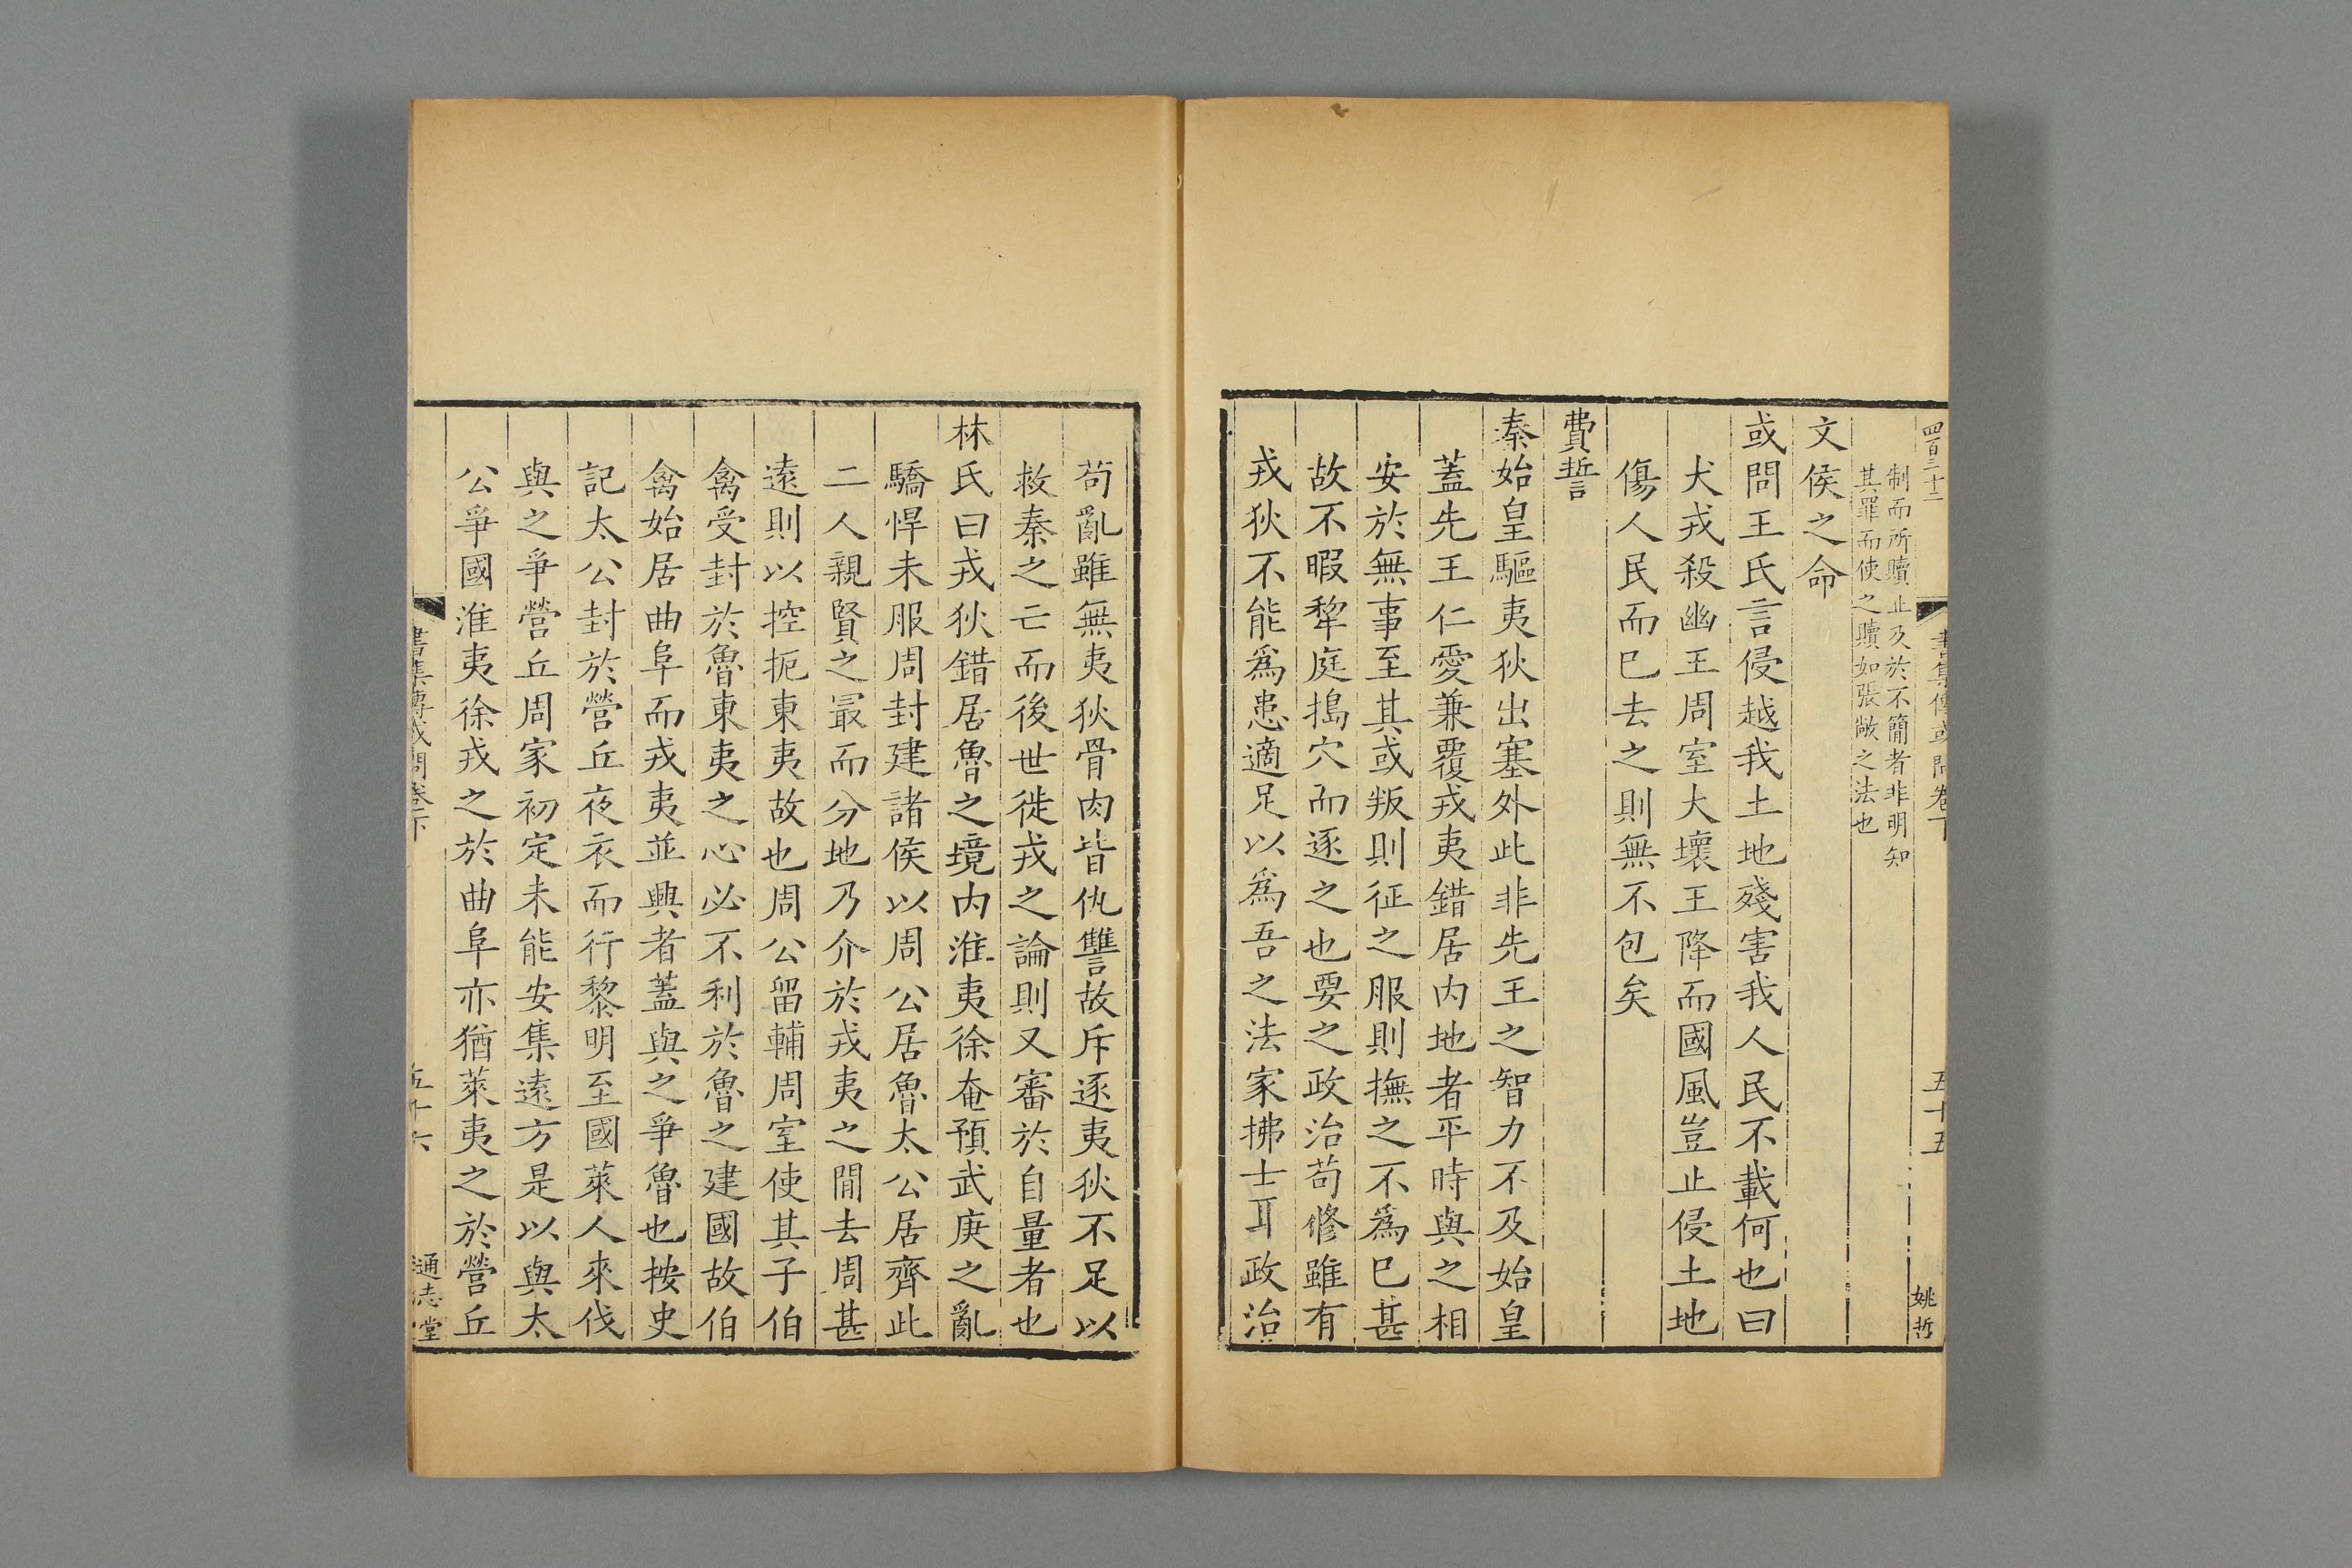 四百三十二
書集傳或問卷下
五十五
姚哲
制而所贖止及於不簡者非明知
其罪而使之贖如張敞之法也
文侯之命
或問王氏言侵越我土地殘害我人民不載何也曰
犬戎殺幽王周室大壞王降而國風豈止侵土地
傷人民而已去之則無不包矣
費誓
秦始皇驅夷狄出塞外此非先王之智力不及始皇
蓋先王仁愛兼覆戎夷錯居内地者平時與之相
安於無事至其或叛則征之服則撫之不為已甚
故不暇犂庭搗穴而逐之也要之政治苟修雖有
戎狄不能爲患適足以爲吾之法家拂士耳政治
苟亂雖無夷狄骨肉皆仇讐故斥逐夷狄不足以
救秦之亡而後世徙戎之論則又審於自量者也
林氏曰戎狄錯居魯之境内淮夷徐奄預武庚之亂
驕悍未服周封建諸侯以周公居魯太公居齊此
二人親賢之最而分地乃介於戎夷之間去周甚
遠則以控扼東夷故也周公留輔周室使其子伯
禽受封於魯東夷之心必不利於魯之建國故伯
禽始居曲阜而戎夷並興者蓋與之爭魯也按史
記太公封於營丘夜衣而行黎明至國萊人來伐
與之爭營丘周家初定未能安集遠方是以與太
公爭國淮夷徐戎之於曲阜亦猶萊夷之於營丘
書集傳或問卷下
五十六
通志堂